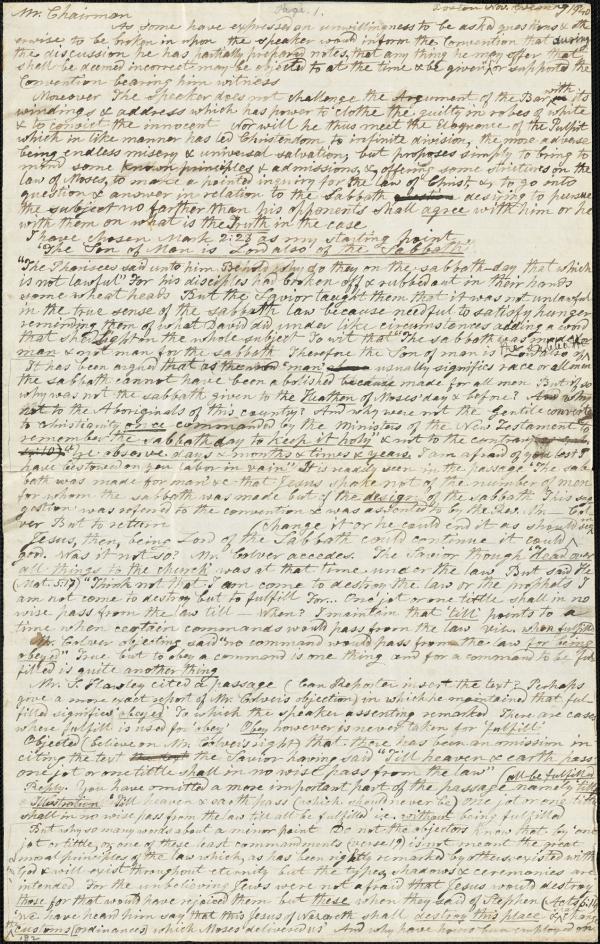 Mr. Chairman Page 1. Boston Nov. evening 1840
As some have expressed an unwillingness to be asked questions & oth
erwise to be broken in upon the speaker would inform the Convention that during
the discussion he has partially prepared notes, that any thing he may offer that
shall be deemed incorrect may be objected to at the time & be given up or supported the
Convention bearing him witness
Moreover The speaker does not challenge the Argument of the Bar with its
windings & address which has power to clothe the guilty in robes of white
& to convict the innocent Nor will he thus meet the Eloquence of the Pulpit
which in like manner has led Christendom to infinite division, the more adverse
being endless misery & universal salvation, but proposes simply to bring to
mind some known principles & admissions, & offering some strictures on the
law of Moses, to make a pointed inquiry for the law of Christ, & to go into
question & answer in relation to the Sabbath desiring to pursue
the subject no farther than his opponents shall agree with him or he
with them on what is the Truth in the case
I have chosen Mark 2:28 as my starting point
"The Son of Man is Lord also of the Sabbath"
"The Pharisees said unto him Behold why do they on the sabbath-day that which
is not lawful" For his disciples had broken off & rubbed out in their hands
some wheat heads But the Savior taught them that it was not unlawful
in the true sense of the sabbath law because needful to satisfy hunger
reminding them of what David did, under like circumstances adding a word
that shed light on the whole subject To wit that "The sabbath was made for
man & not man for the sabbath Therefore the Son of man is Lord also of the sabbath
It has been argued that as the word "man" usually signifies race or all men
the sabbath cannot have been abolished because made for all men But if so
why was not the sabbath given to the Heathen of Moses' day & before? And why
not to the Aboriginals of this country? And why were not the Gentile converts
to Christianity once commanded by the Ministers of the New Testament to
remember the sabbath day to keep it holy & not to the contrary
"Ye observe days & months & times & years. I am afraid of you lest I
have bestowed on you labor in vain" It is readily seen in the passage "The sab
bath was made for man" &c that Jesus spoke not of the number of men
for whom the sabbath was made but of the design of the sabbath This sug
gestion was referred to the convention & was assented to by the Rev. Mr. Col
ver But to return change it or he could end it as should sug
Jesus, then, being Lord of the Sabbath could continue it could
good. Was it not so? Mr. Colver accedes. The Savior though "Head over
all things to the church" was at that time under the law. But said He
(Mat. 5:17) "Think not that I am come to destroy the law or the prophets I
am not come to destroy but to fulfill For.. One jot or one tittle shall in no
wise pass from the law till – When? I maintain that 'till' points to a
time when certain commands would pass from the law viz. when fulfilled
Mr. Colver objecting said "no command would pass from the law for being
obeyed" True but to obey a command is one thing and for a command to be ful
filled is quite another thing
Mr. S. Hawley cited a passage (Can Reporter insert the text? Perhaps
give a more exact report of Mr. Colver's objection) in which he maintained that ful-
filled signifies obeyed To which the speaker assenting remarked There are cases
where fulfill is used for 'obey' Obey however is never taken for 'fulfill'
Objected (believe on Mr. Colver's right) that there has been an omission in
citing the text the Savior having said "Till heaven & earth pass
one jot or one tittle shall in no wise pass from the law" all be fulfilled
Reply. You have omitted a more important part of the passage namely till
Illustration Till heaven & earth pass (which should never be) one jot or one tittle
shall in no wise pass from the law till all be fulfilled i.e. without being fulfilled
But why so many words about a minor point Do not the objectors know that by 'one
jot or tittle, or one of these least commandments (verse 19) is not meant the great
moral principles of the law which, as has been rightly remarked by others, existed with
God & will exist throughout eternity but the types, shadows & ceremonies are
intended For the unbelieving Jews were not afraid that Jesus would destroy
those for that would have rejoiced them but these when they said of Stephen (Acts 6:14)
"We have heard him say that this Jesus of Nazareth shall destroy this place & change
the customs (ordinances) which Moses delivered us" And why have hours been employed on